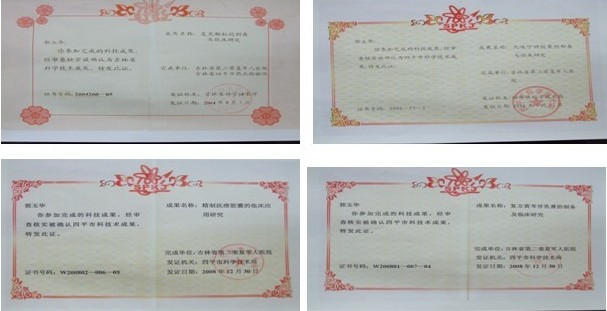 郭玉华
你参加完成的科技成果，
经审查核实被确认为吉林省
科学技术成果。特发此证。
证书号码：2004260—05
成果名称：
及临床研究
完成单位：吉林省第二荣复军人医院
发证机关：吉林省科学技术厅
发证日期：2004年
郭玉华
你参加完成的科技成果，经审
查核实被确认四平市科学技术成
果，特发此证。
证书号码：
成果名称：
与临床研究
完成单位：吉林省第二荣复军人医
院
发证机关：
发证日期：
郭玉华
你参加完成的科技成果，经审
查核实被确认四平市科技术成果，
特发此证。
证书号码：W200802—006—05
成果名称：精制抗痨胶囊的临床应
用研究
完成单位：吉林省第二荣复军人医院
发证机关：四平市科学技术局
发证日期：2008年12月30日
郭玉华
你参加完成的科技成果，经审
查核实被确认四平市科技术成果，
特发此证。
证书号码：W200801—007—04
成果名称：复方黄芩苷乳膏的制备
及临床研究
完成单位：吉林省第二荣复军人医院
发证机关：四平市科学技术局
发证日期：2008年12月30日